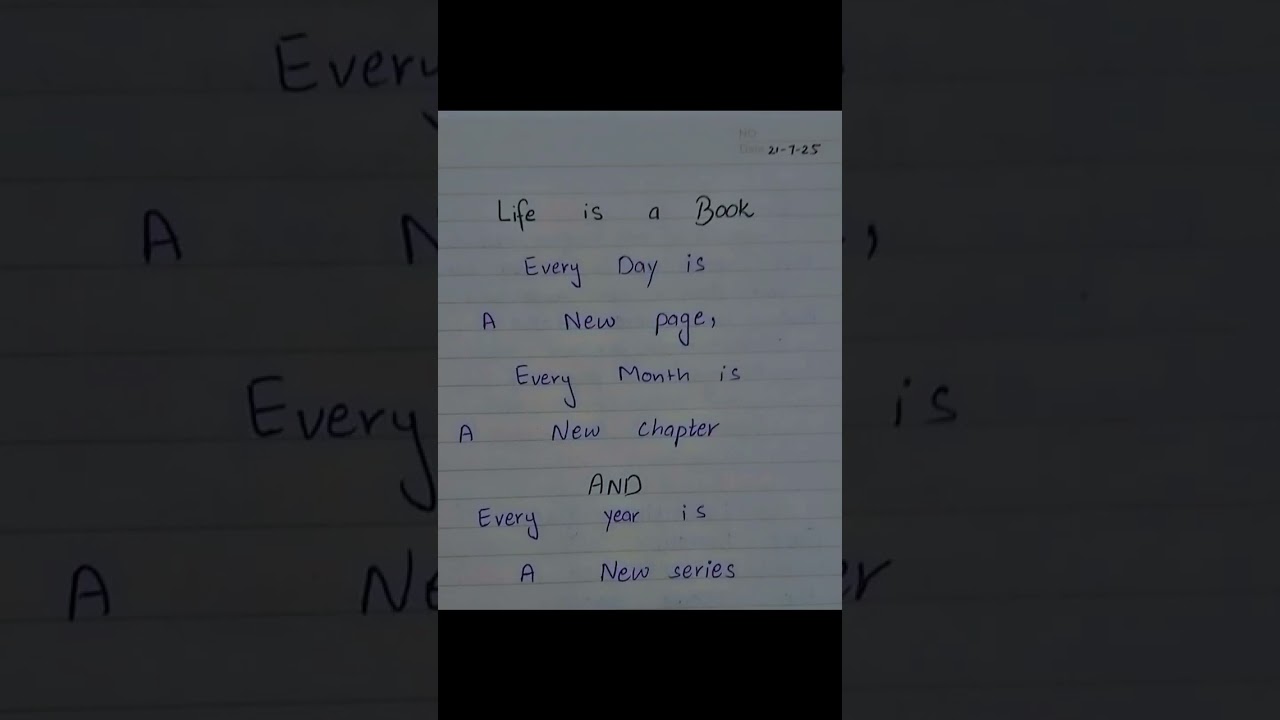 NO
Date 21-7-25
Life is a Book
Every Day is
A New page,
Every Month is
A New chapter
AND
Every year is
A New series